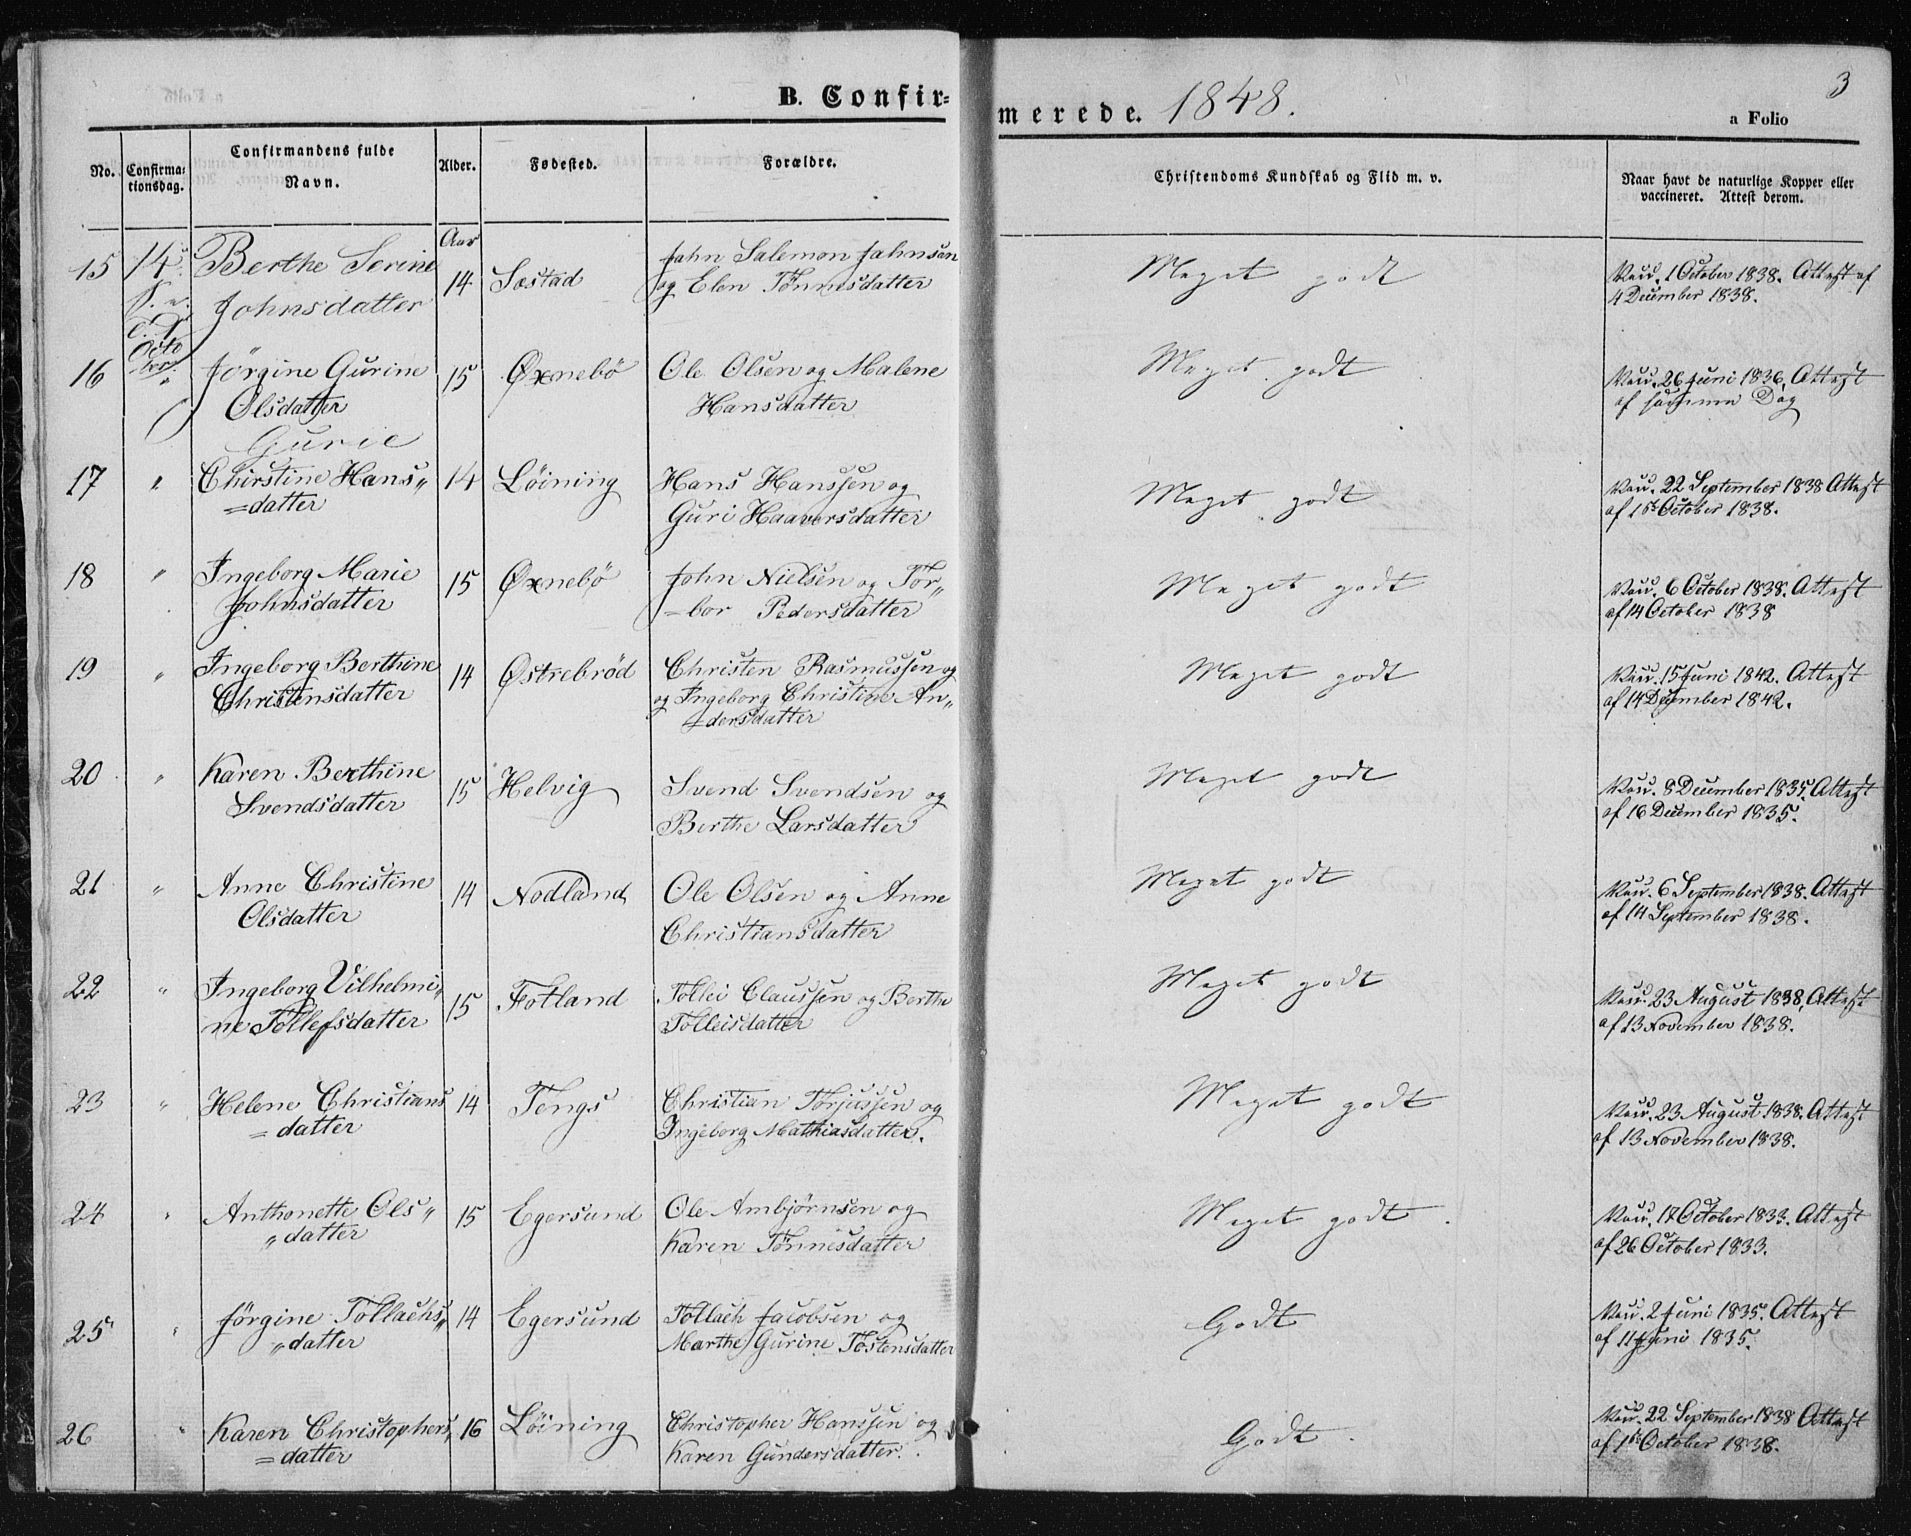 3
B. Confir=merede. 1848.
a Folio
No. Confirmationsdag. Confirmandens fulde Navn. Alder. Fødested. Forældre. Christendoms Kundskab og Flid m. v. Naar havt de naturlige Kopper eller vaccineret. Attest derom.
Aar
15 14 Berthe Serine 14 Søstad John Salemon Johnsen Meget godt Vacc. 1 October 1838. Attest af
S. e. Johnsdatter og Elen Tönnesdatter 4 December 1838.
Octo
ber
16 " Jörgine Gurine 15 Øxnebö Ole Olsen og Malene Meget godt Vacc. 26 Juni 1836. Attest
Olsdatter Hansdatter af samme Dag
Gurie
17 " Chirstine Hans„ 14 Löining Hans Hanssen og Meget godt Vacc. 22 September 1838 Attest
=datter Guri Haaversdatter af 1ste October 1838.
18 " Ingeborg Marie 15 Øxnebö John Nielsen og Tor„ Meget godt Vacc. 6 October 1838. Attest
Johnsdatter =bor Pedersdatter af 14 October 1838
19 " Ingeborg Berthine 14 Østrebröd Christen Rasmussen og Meget godt Vacc. 15 Juni 1842. Attest
Christensdatter og Ingeborg Christine An„ af 14 December 1842.
=dersdatter
20 " Karen Berthine 15 Helvig Svend Svendsen og Meget godt Vacc. 8 December 1835. Attest
Svendsdatter Berthe Larsdatter af 16 December 1835.
21 " Anne Christine 14 Nodland Ole Olsen og Anne Meget godt Vacc. 6 September 1838. Attest
Olsdatter Christiansdatter af 14 September 1838.
22 " Ingeborg Vilhelmi„ 15 Fotland Tollei Claussen og Berthe Meget godt Vacc. 23 August 1838, Attest
ne Tollefsdatter Tolleisdatter af 13 November 1838.
23 " Helene Christians 14 Tengs Christian Torjussen og Meget godt Vacc. 23 August 1838. Attest
=datter Ingeborg Mathiasdatter. af 13 November 1838.
24 " Anthonette Ols„ 15 Egersund Ole Ambjørnsen og Meget godt. Vacc. 17 October 1833. Attest
„datter Karen Tönnesdatter af 26 October 1833.
25 " Jörgine Tollachs„ 14 Egersund Tollach Jacobsen og Godt Vacc. 2 Juni 1835. Attest
„datter Marthe Gurine Tostensdatter af 11 Juni 1835.
26 " Karen Christophers„ 16 Löining Christopher Hanssen og Godt. Vacc. 22 September 1838 Attest
=datter Karen Gundersdatter. af 1ste October 1838.